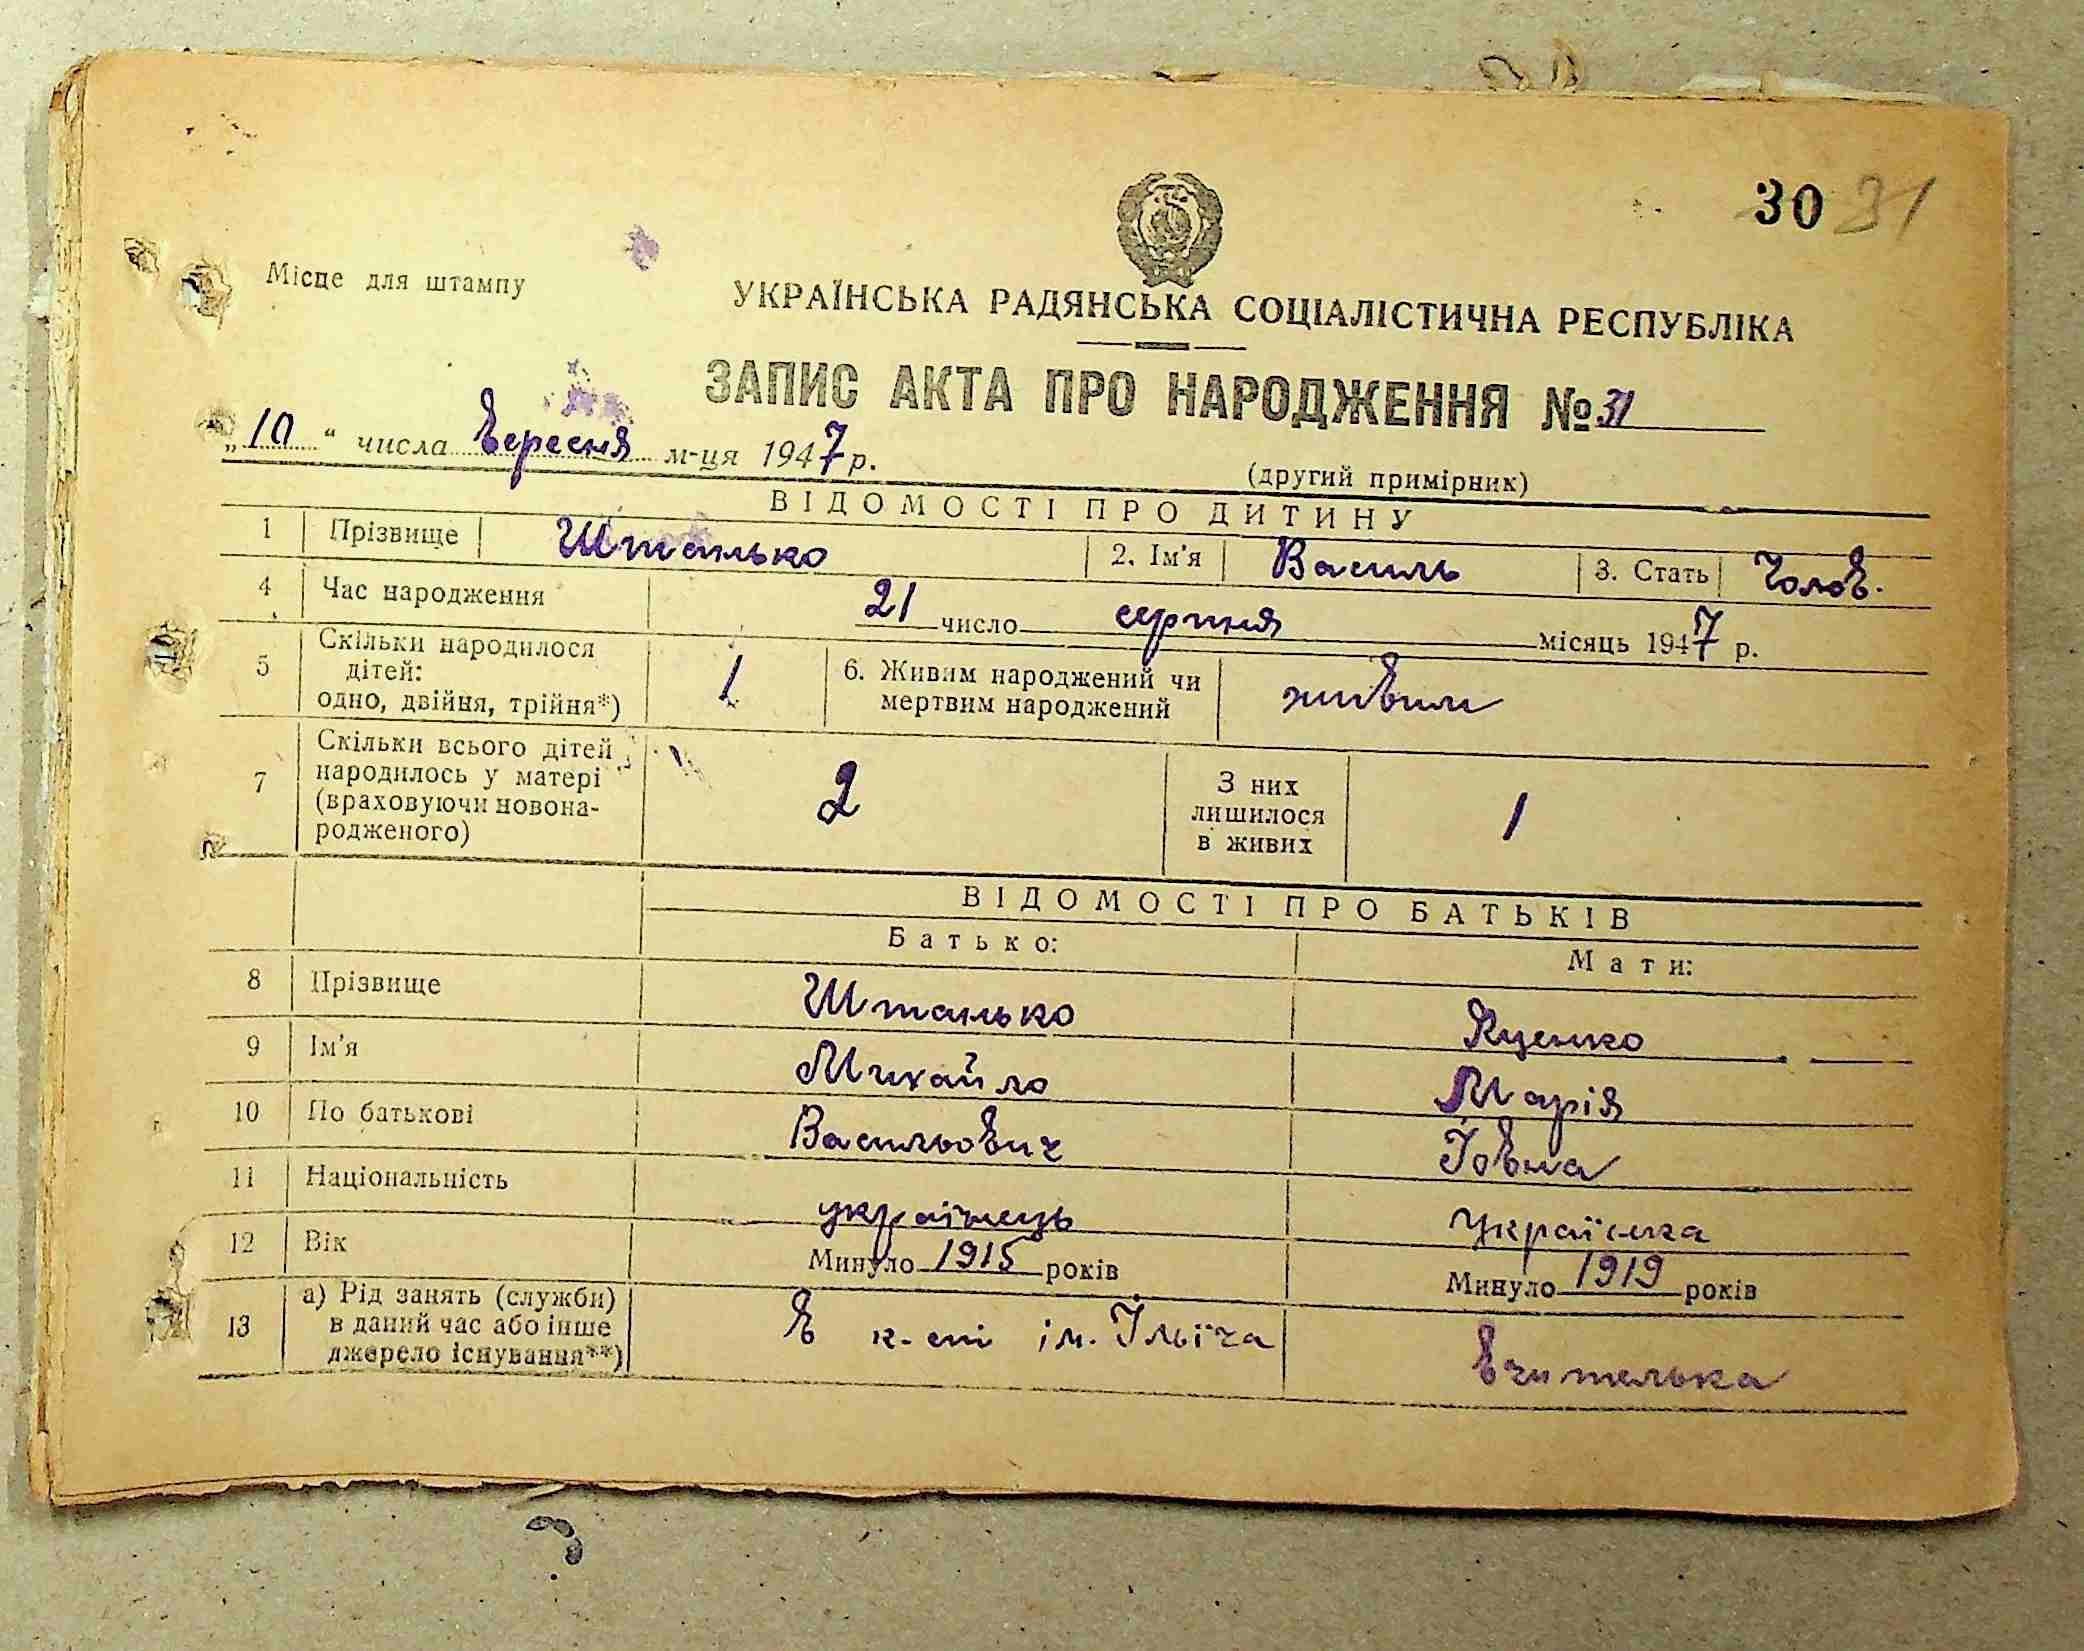 30 31
Місце для штампу
УКРАЇНСЬКА РАДЯНСЬКА СОЦІАЛІСТИЧНА РЕСПУБЛІКА
ЗАПИС АКТА ПРО НАРОДЖЕННЯ № 31
„10“ числа Вересня м-ця 1947 р.
(другий примірник)
ВІДОМОСТІ ПРО ДИТИНУ
1 Прізвище Штанько 2. Ім'я Василь 3. Стать Чолов.
4 Час народження 21 число серпня місяць 1947 р.
5 Скільки народилося дітей: одно, двійня, трійня*) 1 6. Живим народжений чи мертвим народжений живим
7 Скільки всього дітей народилось у матері (враховуючи новонародженого) 2 З них лишилося в живих 1
ВІДОМОСТІ ПРО БАТЬКІВ
Батько: Мати:
8 Прізвище Штанько Яценко
9 Ім'я Михайло Марія
10 По батькові Васильович Іовна
11 Національність українець Українка
12 Вік Минуло 1915 років Минуло 1919 років
13 а) Рід занять (служби) в даний час або інше джерело існування**) В к-спі ім. Ільїча Вчителька